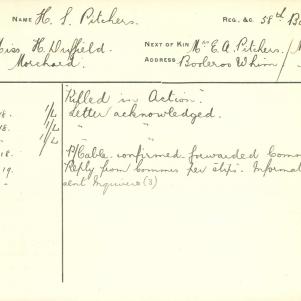 NAME H. S. Pitchers. REG. &C. 58th Ba
iss H. Duffield NEXT OF KIN Mrs E. A. Pitchers.
Morchard. ADDRESS Booleroo Whim
"Killed in Action."
18. 1/L Letter acknowledged.
18. 1/L " "
1/L " "
18 P/Cable confirmed forwarded Comm
19. Reply from Commrs per slips. Informat
sent Inquirers (3)